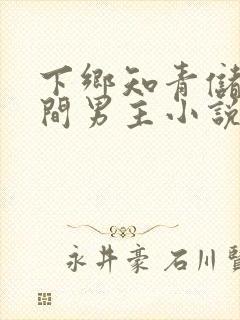 下鄉知青儲
間男主小說
永井豪 石川賢